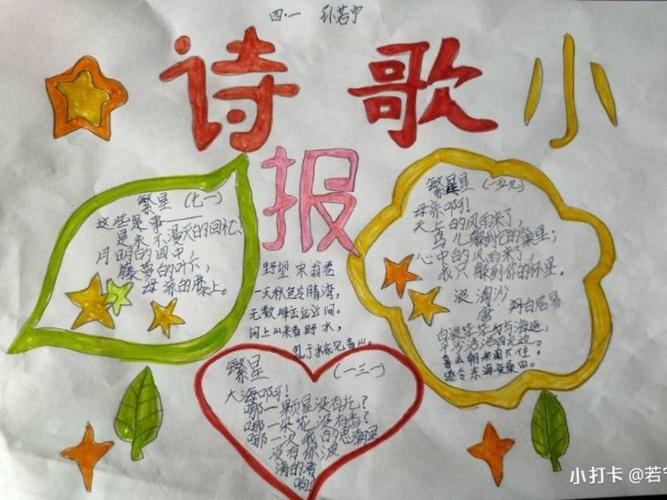 四·一 孙若宁
诗歌小
报
繁星（七一）
这些是事——
是永不漫灭的回忆：
月明的园中，
藤萝的叶下，
母亲的膝上。
繁星（一五九）
母亲啊！
天上的风雨来了，
鸟儿躲到它的巢里；
心中的风雨来了，
我只躲到你的怀里。
浪淘沙
唐 白居易
白浪茫茫与海连，
平沙浩浩四无边。
暮去朝来淘不住，
遂令东海变桑田。
野望 宋 翁卷
一天秋色冷晴湾，
无数峰峦远近间。
闲上山来看野水，
忽于水底见青山。
繁星（一三一）
大海啊！
哪一颗星没有光？
哪一朵花没有香？
哪一次我的思潮里
没有你波
涛的清
响？
小打卡 @若宁